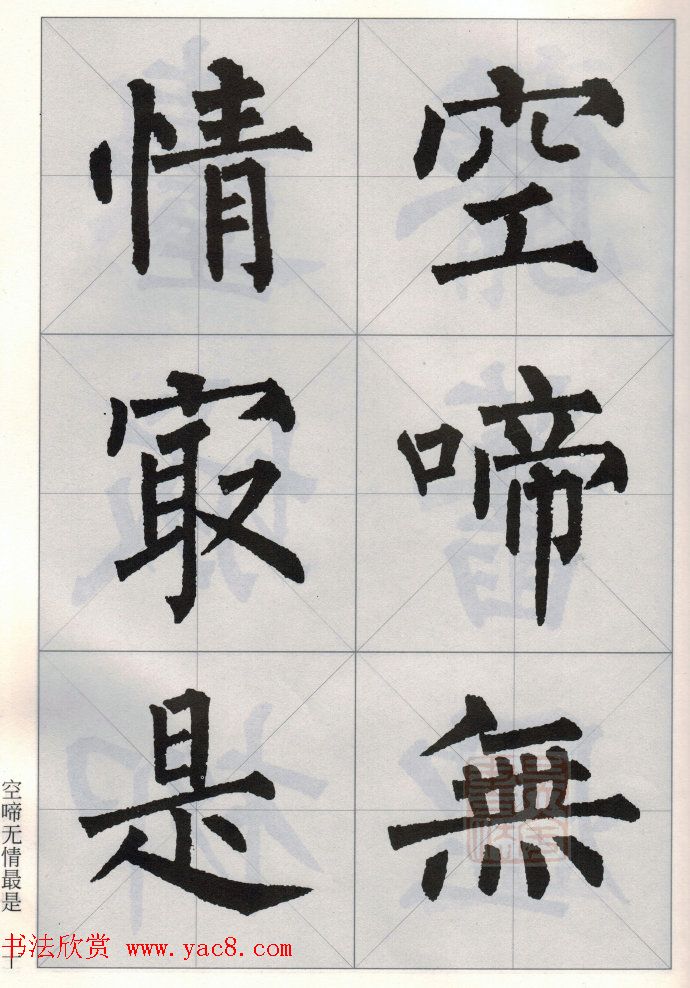 空啼無
情㝡是
空啼无情最是
书法欣赏 www.yac8.com